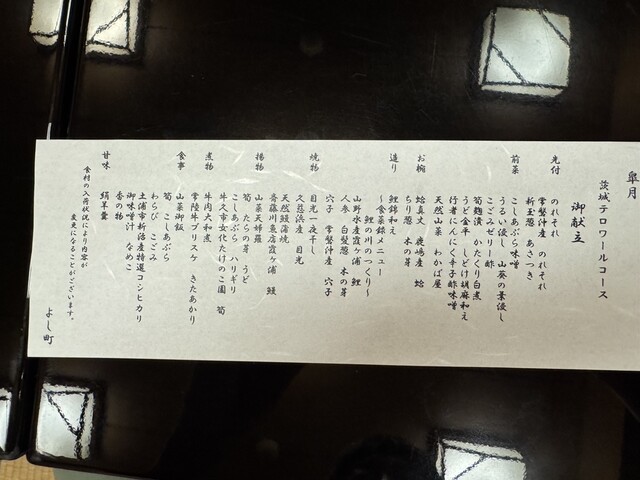 皐月
茨城テロワールコース
御献立
先付
のれそれ
常磐沖産 のれそれ
新玉葱 あさつき
前菜
こしあぶら味噌
うるい浸し 山葵の葉浸し
こごみゼリー酢
筍麹漬 かたくり白煮
うど金平 しどけ胡麻和え
行者にんにく辛子酢味噌
天然山菜 わかば屋
お椀
蛤真丈 鹿嶋産 蛤
ちり葱 木の芽
造り
鯉錦和え
~食菜録メニュー
鯉の川のつくり~
山野水産霞ヶ浦 鯉
人参 白髪葱 木の芽
焼物
穴子 常磐沖産 穴子
目光一夜干し
久慈浜産 目光
天然鰻蒲焼
斎藤川魚店霞ヶ浦 鰻
揚物
山菜天婦羅
筍 たらの芽 うど
こしあぶら ハリギリ
牛久市女化たけのこ園 筍
煮物
牛肉大和煮
常陸牛ブリスケ きたあかり
食事
山菜御飯
筍 こしあぶら
わらび こごみ
土浦市新治産特選コシヒカリ
御味噌汁 なめこ
香の物
甘味
絹羊羹
食材の入荷状況により内容が
変更になることがございます。
よし町